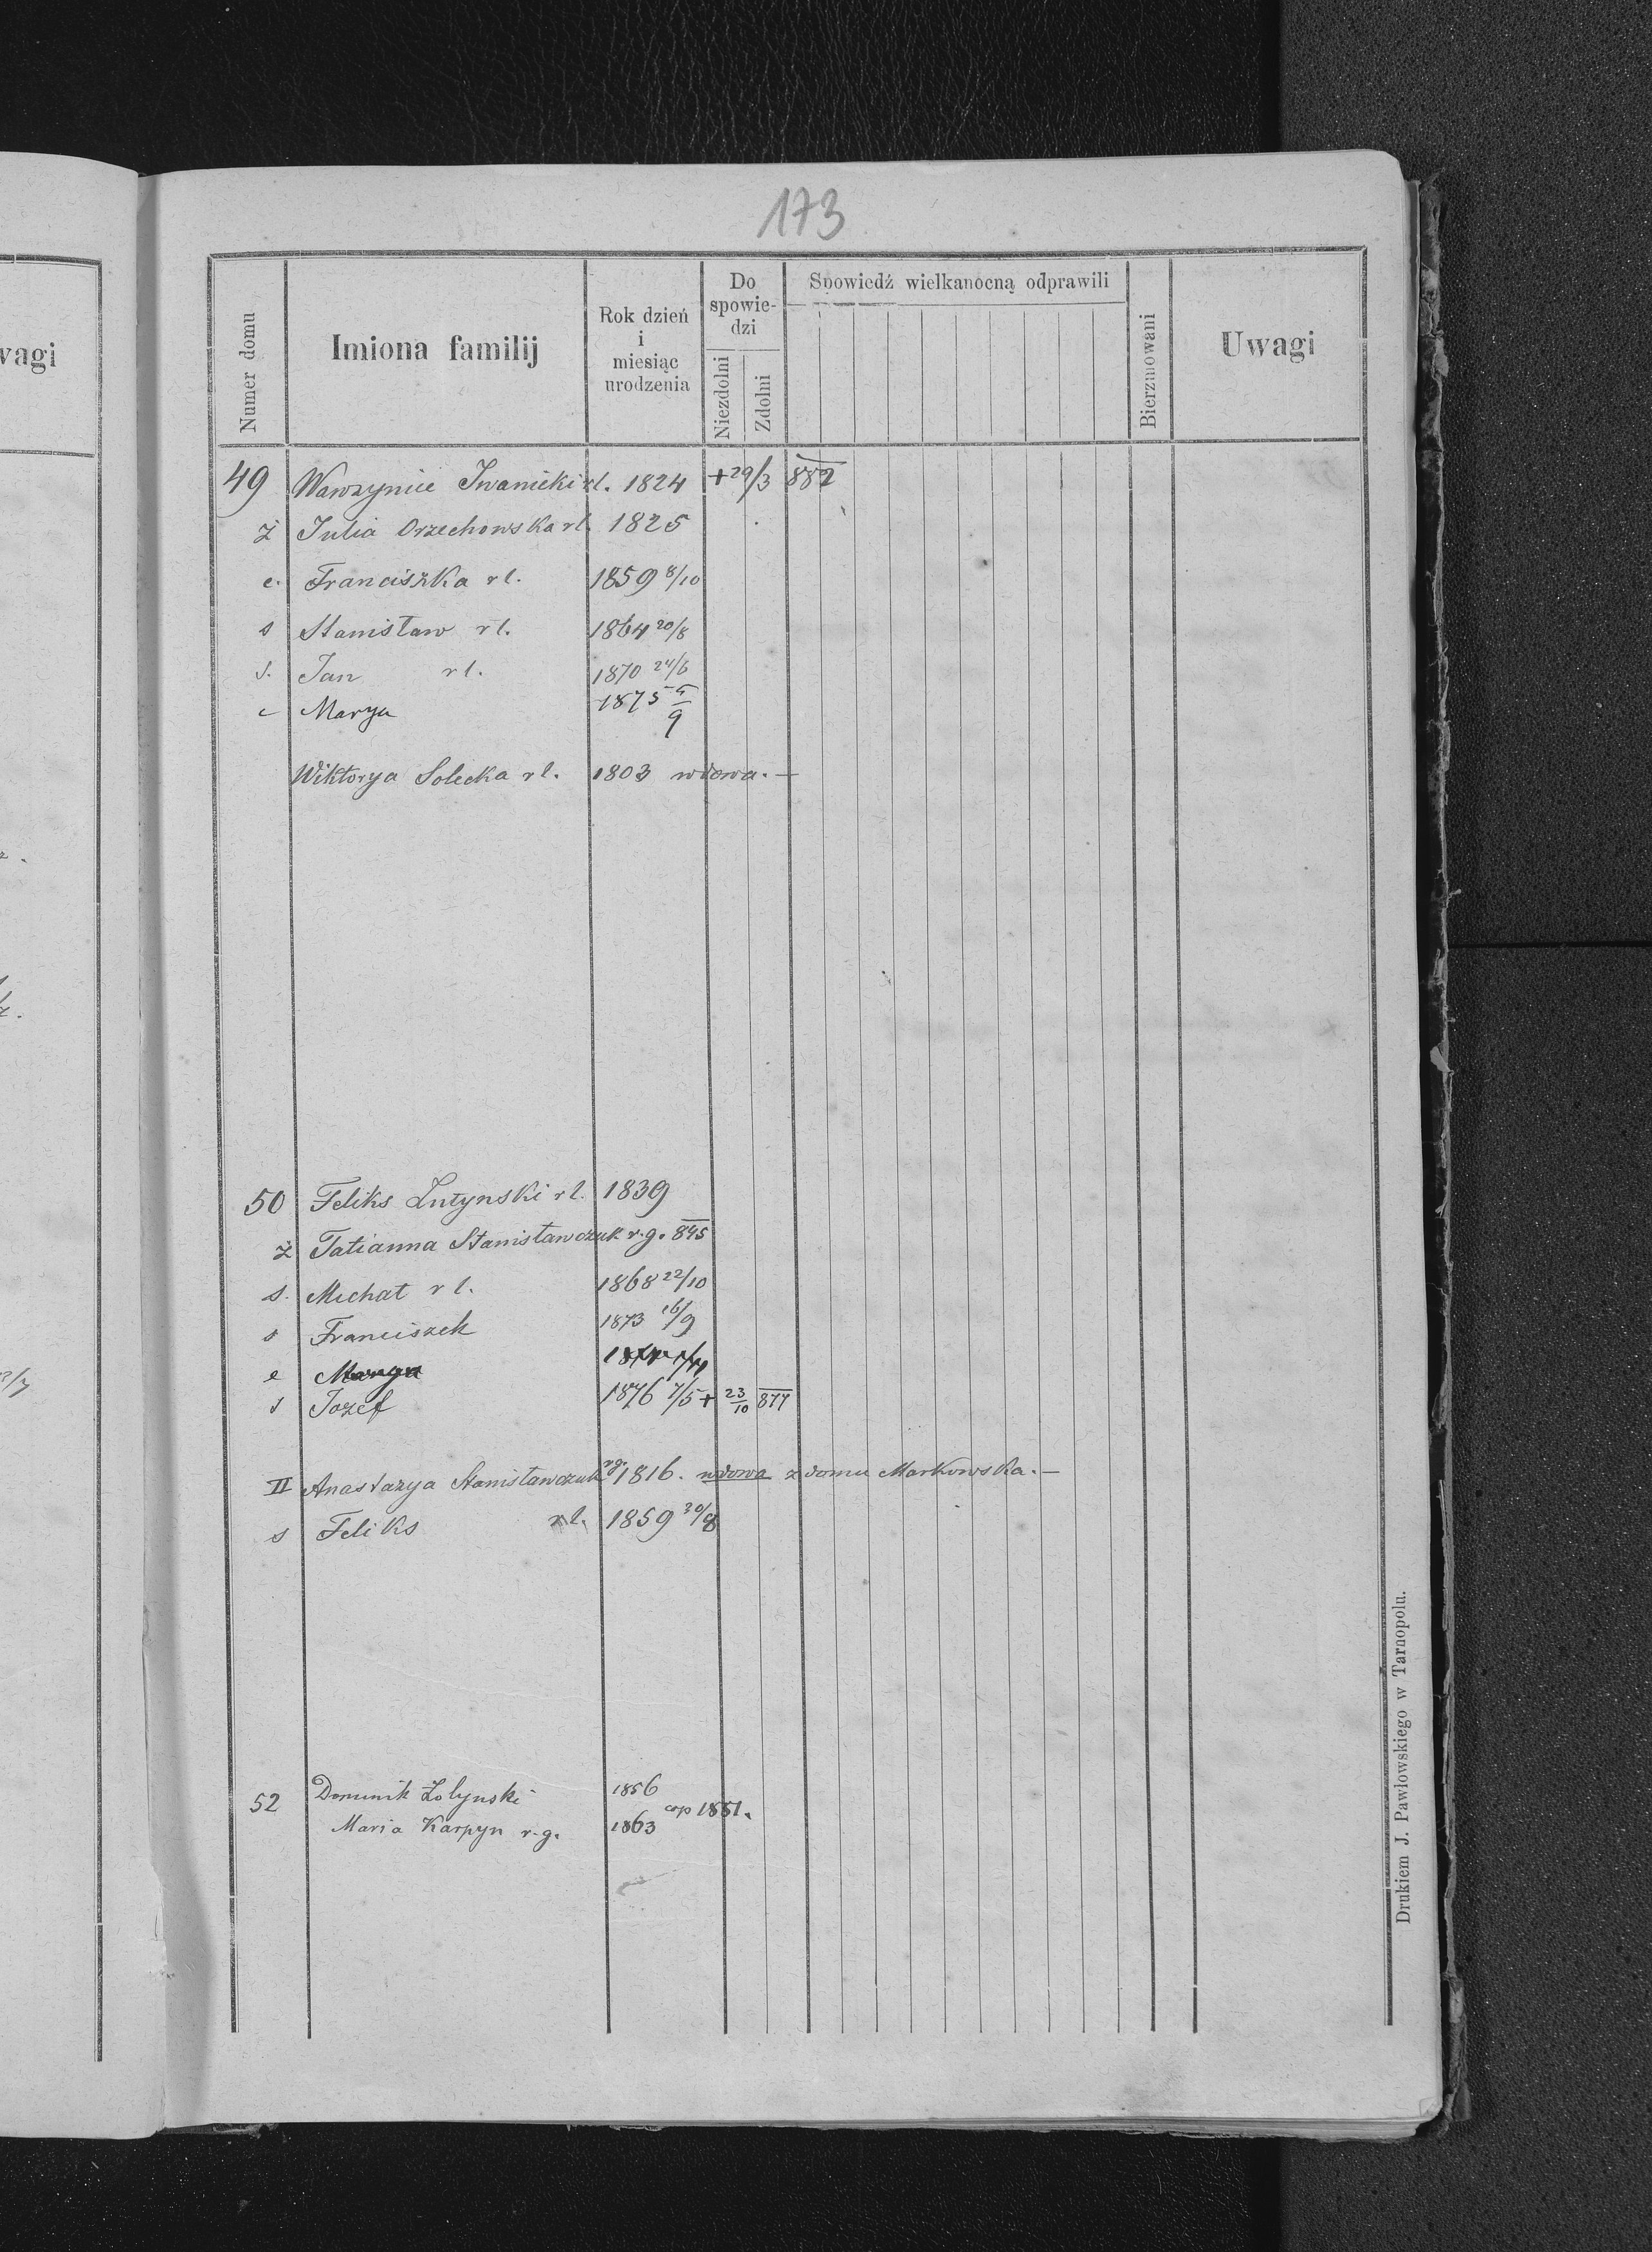 173
wagi
Numer domu
Imiona familij
Rok dzień i miesiąc urodzenia
Do spowiedzi
Niezdolni
Zdolni
Spowiedź wielkanocną odprawili
Bierzmowani
Uwagi
49 Wawrzyniec Iwanicki rl. 1824 +29/3 882
ż Julia Orzechowska rl. 1825
c. Franciszka rl. 1859 8/10
s Stanisław rl. 1864 20/8
s. Jan rl. 1870 24/6
c Marya 1875 5/9
Wiktorya Solecka rl. 1803 wdowa. —
50 Feliks Lutynski rl. 1839
ż Tatianna Stanisławczuk r.g. 845
s. Michał rl. 1868 22/10
s Franciszek 1873 16/9
c Marya
s Jozef 1876 7/5 + 23/10 877
II Anastazya Stanisławczuk rg. 1816. wdowa z domu Markowska. —
s Feliks rl. 1859 30/8
52 Dominik Łolynski 1856
cop 1881.
Maria Karpyn r.g. 1863
Drukiem J. Pawłowskiego w Tarnopolu.